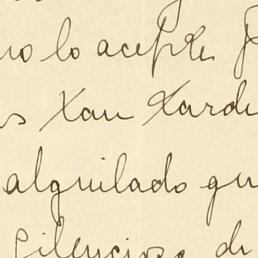 no lo acepte
Xan Xarde
alquilado qu
silencioso de